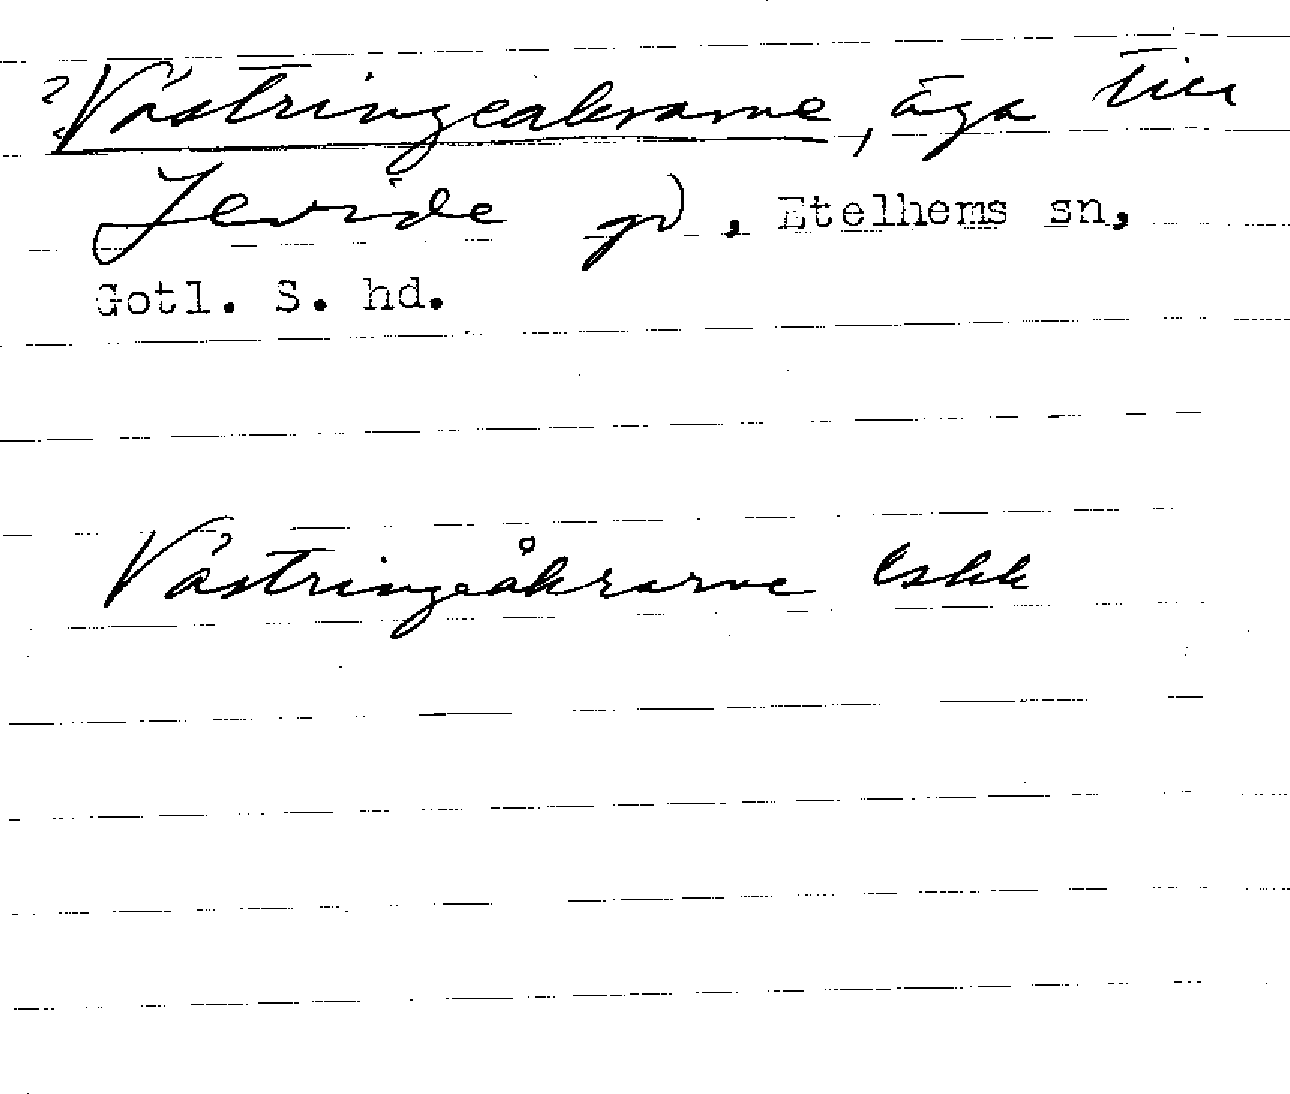 ? Västringeakrarne, äga till
Jevide gd, Etelhems sn,
Gotl. S. hd.
Västringeåkrarne lskk